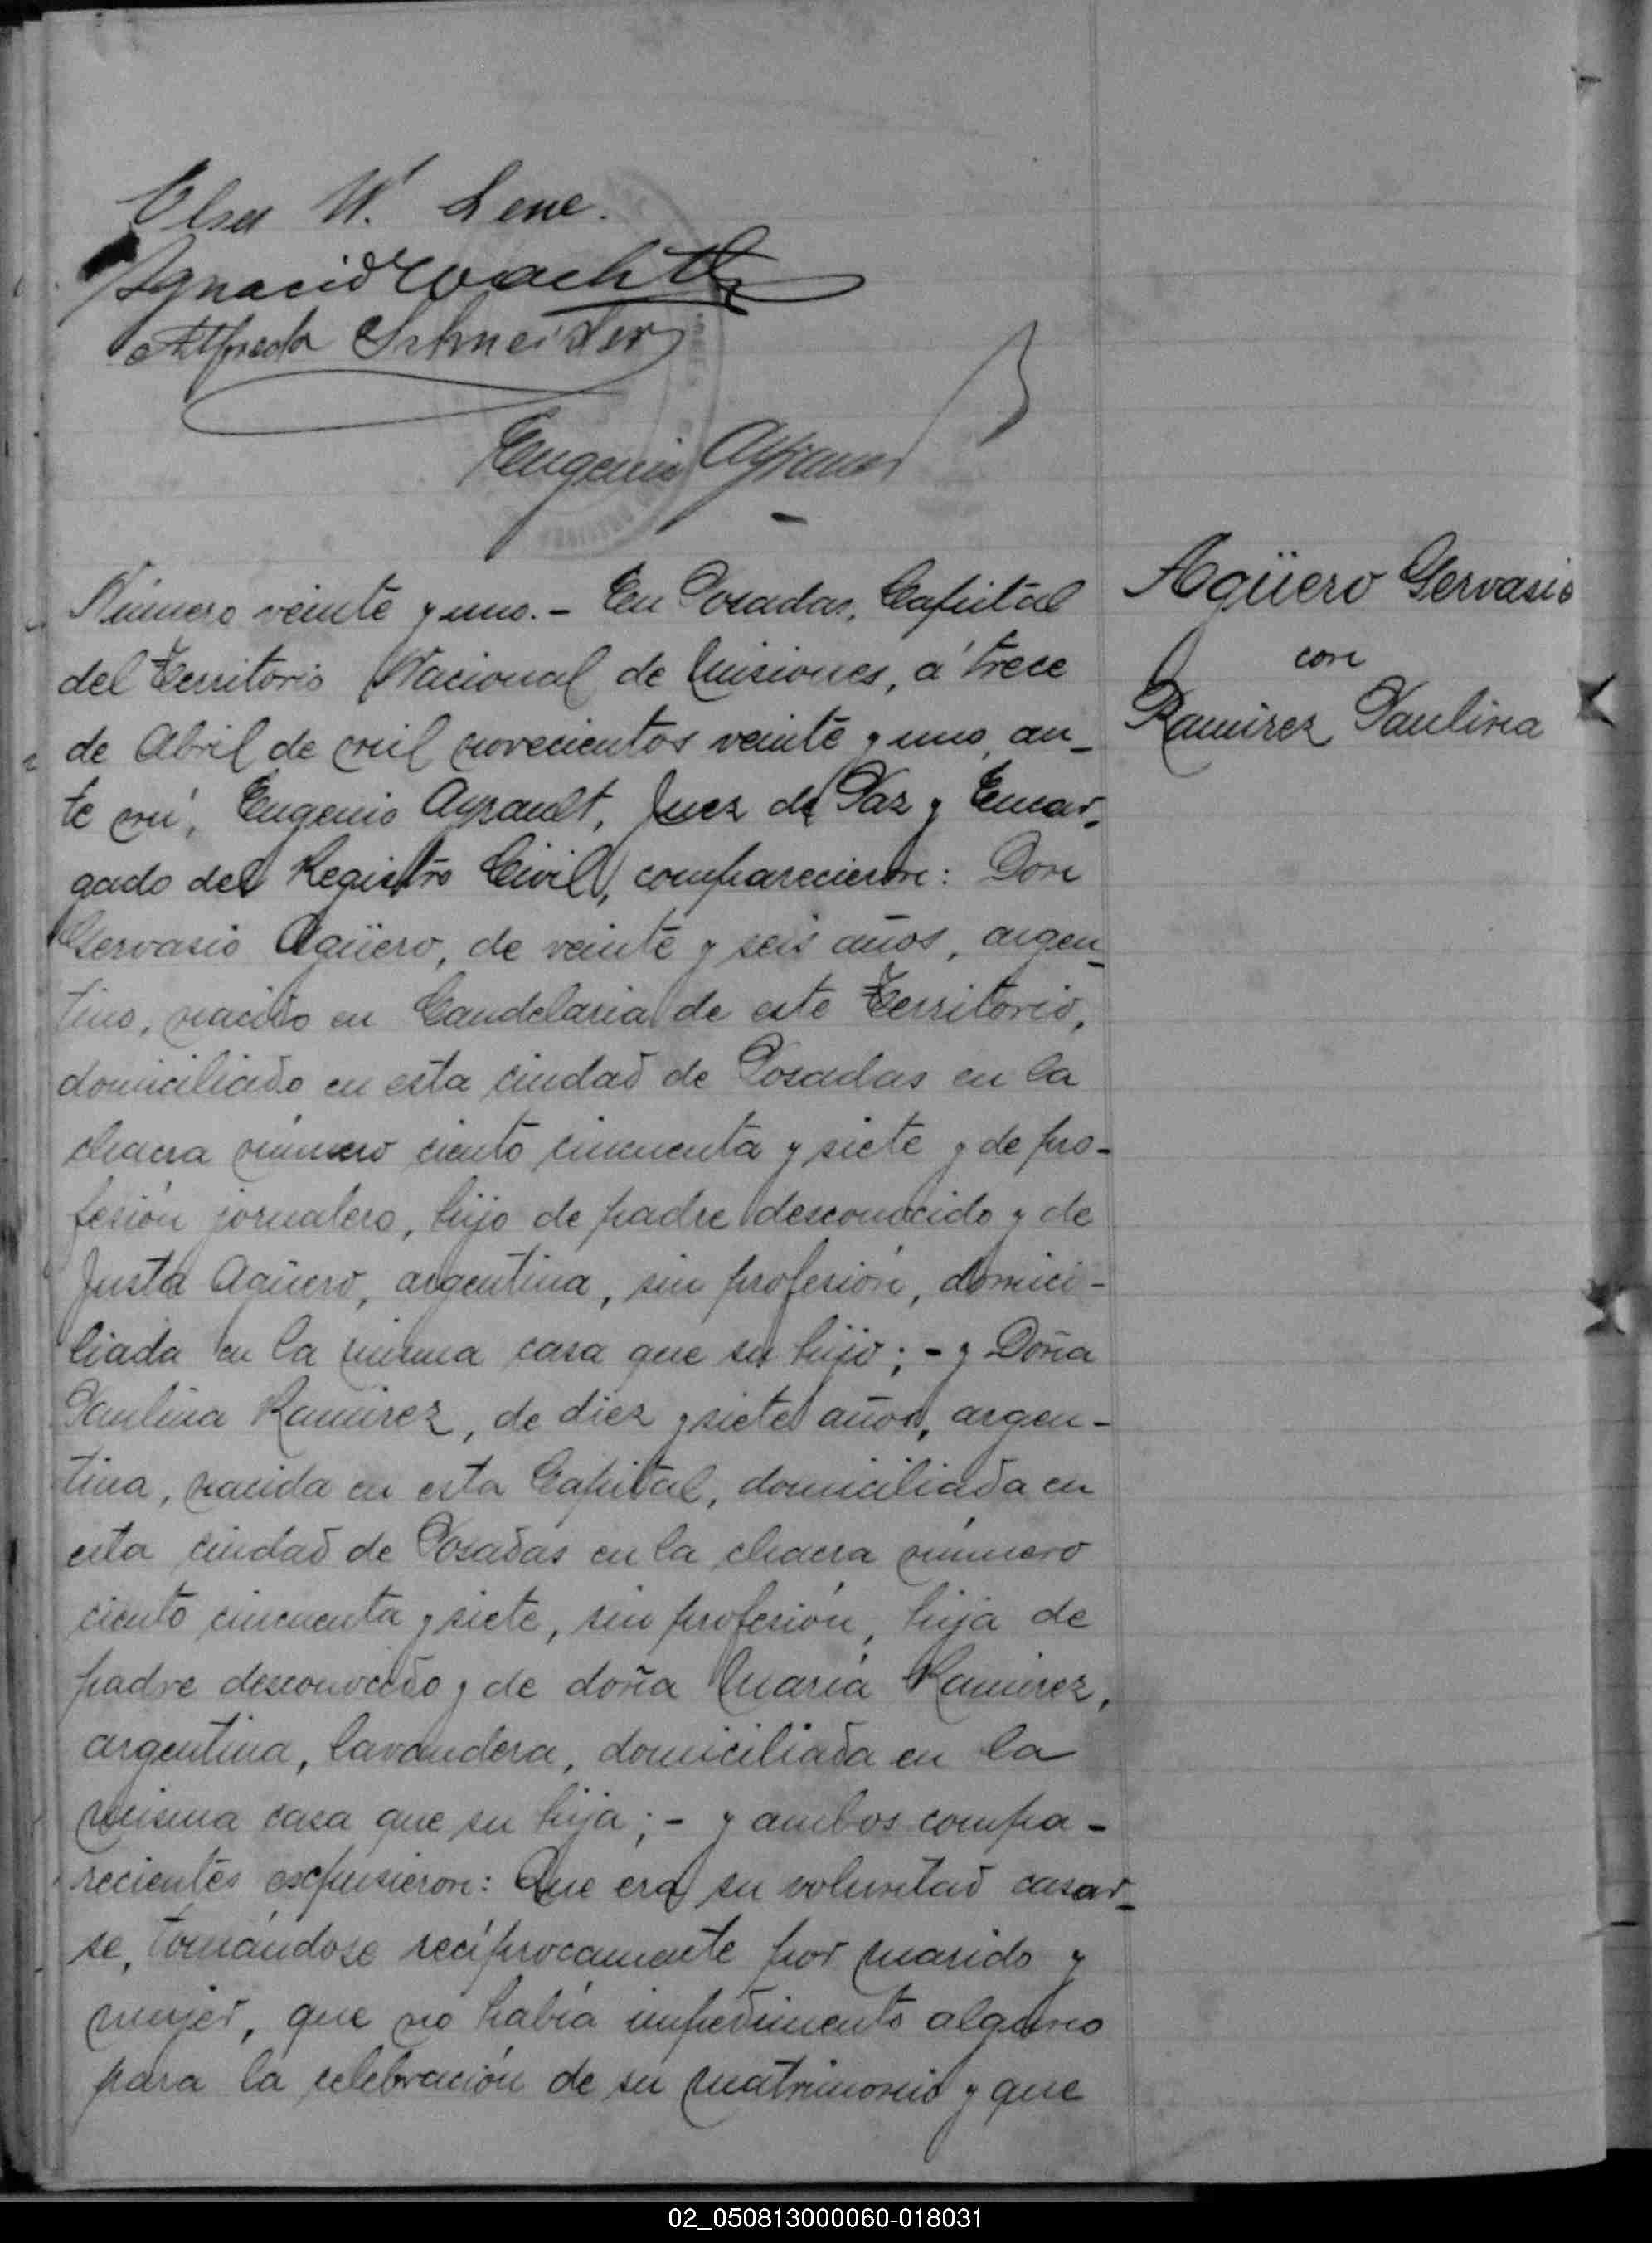 Elsa W. Lene.
Ignacio Wachtl
Alfredo Schneider
Eugenio Ayrault
Número veinte y uno. - En Posadas, Capital
del Territorio Nacional de Misiones, á trece
de Abril de mil novecientos veinte y uno, an-
te mí, Eugenio Ayrault, Juez de Paz y Encar-
gado del Registro Civil, comparecieron: Don
Gervasio Agüero, de veinte y seis años, argen-
tino, nacido en Candelaria de este Territorio,
domiciliado en esta ciudad de Posadas en la
chacra número ciento cincuenta y siete y de pro-
fesión jornalero, hijo de padre desconocido y de
Justa Agüero, argentina, sin profesión, domici-
liada en la misma casa que su hijo; - y Doña
Paulina Ramirez, de diez y siete años, argen-
tina, nacida en esta Capital, domiciliada en
esta ciudad de Posadas en la chacra número
ciento cincuenta y siete, sin profesión, hija de
padre desconocido y de doña María Ramirez,
argentina, lavandera, domiciliada en la
misma casa que su hija; - y ambos compa-
recientes expusieron: Que era su voluntad casar-
se, tomándose recíprocamente por marido y
mujer, que no había impedimento alguno
para la celebración de su matrimonio y que
Agüero Gervasio
con
Ramirez Paulina
02_050813000060-018031